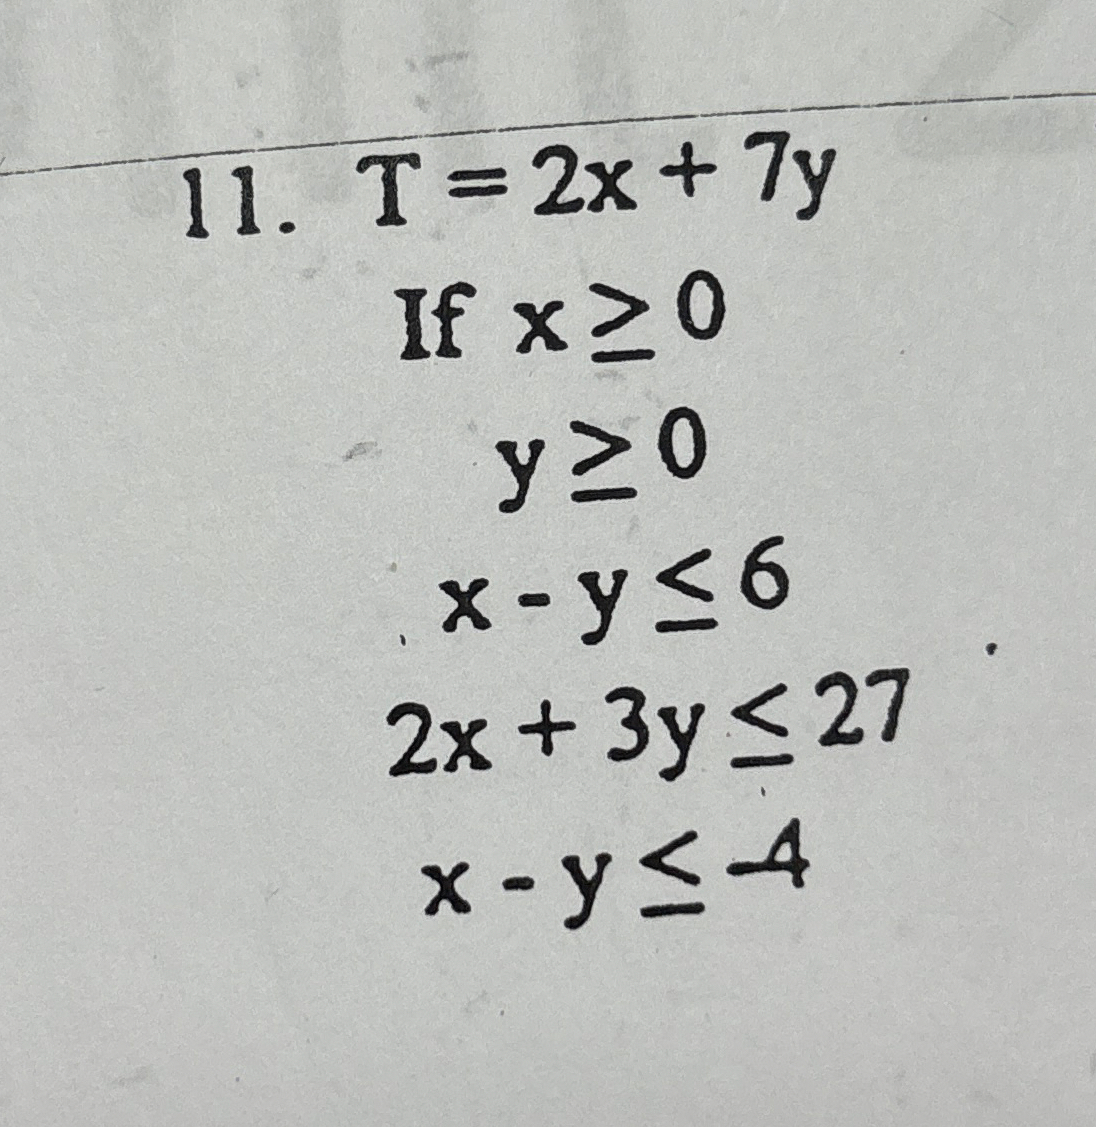 11. T = 2x + 7y
If x ≥ 0
y ≥ 0
x - y ≤ 6
2x + 3y ≤ 27
x - y ≤ -4